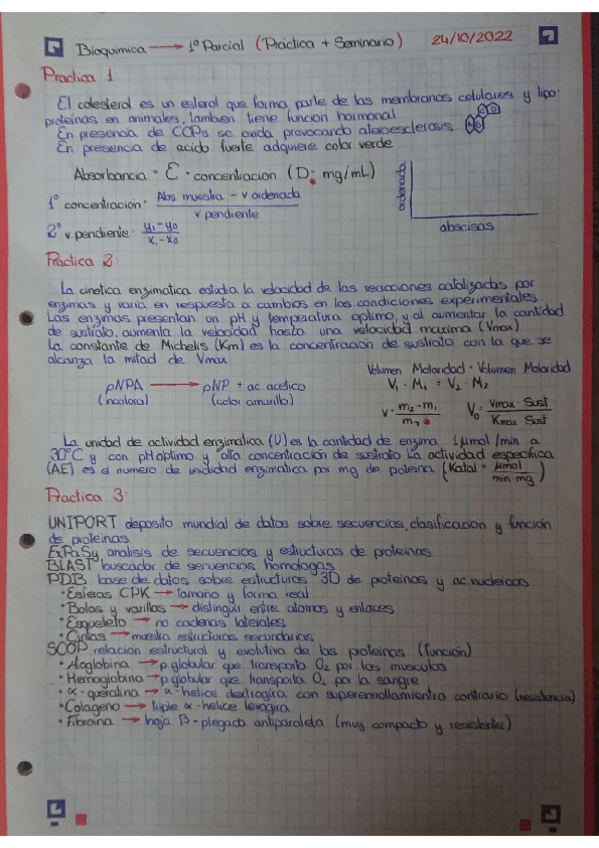 Bioquimica → 1º Parcial (Práctica + Seminario) 24/10/2022
Practica 1
El colesterol es un esterol que forma parte de las membranas celulares y lipo-
proteinas en animales, tambien tiene funcion hormonal
En presencia de COPs se oxida provocando ateroesclerosis
En presencia de acido fuerte adquiere color verde
Absorbancia = E · concentracion (D: mg/mL)
1º concentracion = Abs muestra - v ordenada / v pendiente
2º v pendiente = y₁-y₀ / x₁-x₀
ordenada
abscisas
Práctica 2:
La cinetica enzimatica estudia la velocidad de las reacciones catalizadas por
enzimas y varia en respuesta a cambios en las condiciones experimentales
Las enzimas presentan un pH y temperatura optimo, y al aumentar la cantidad
de sustrato, aumenta la velocidad hasta una velocidad maxima (Vmax)
La constante de Michelis (Km) es la concentracion de sustrato con la que se
alcanza la mitad de Vmax
Volumen · Molaridad = Volumen · Molaridad
V₁ · M₁ = V₂ · M₂
pNPA → pNP + ac. acetico
(incoloro) (color amarillo)
V₀ = Vmax · Sust / Kmax Sust
La unidad de actividad enzimatica (U) es la cantidad de enzima 1 µmol/min a
30ºC y con pH optimo y alta concentracion de sustrato La actividad especifica
(AE) es el numero de unidad enzimatica por mg de poteina (Katal = µmol / min·mg)
Practica 3:
UNIPORT deposito mundial de datos sobre secuencias, clasificacion y función
de proteinas
ExPaSy analisis de secuencias y estructuras de proteinas
BLAST buscador de secuencias homologas
PDB base de datos sobre estructuras 3D de proteinas y ac. nucleicos
· Esferas CPK → tamaño y forma real
· Bolas y varillas → distinguir entre atomos y enlaces
· Esqueleto → no cadenas laterales
· Cintas → muestra estructuras secundarias
SCOP relacion estructural y evolutiva de las proteinas (función)
· → p globular que transporta O₂ por los musculos
· Hemoglobina → p globular que transporta O₂ por la sangre
· α-queratina → α-helice dextrogira con superenrollamientra contrario (resistencia)
· Colageno → triple α-helice levogira
· Fibroina → hoja β-plegada antiparalela (muy compacto y resistente)